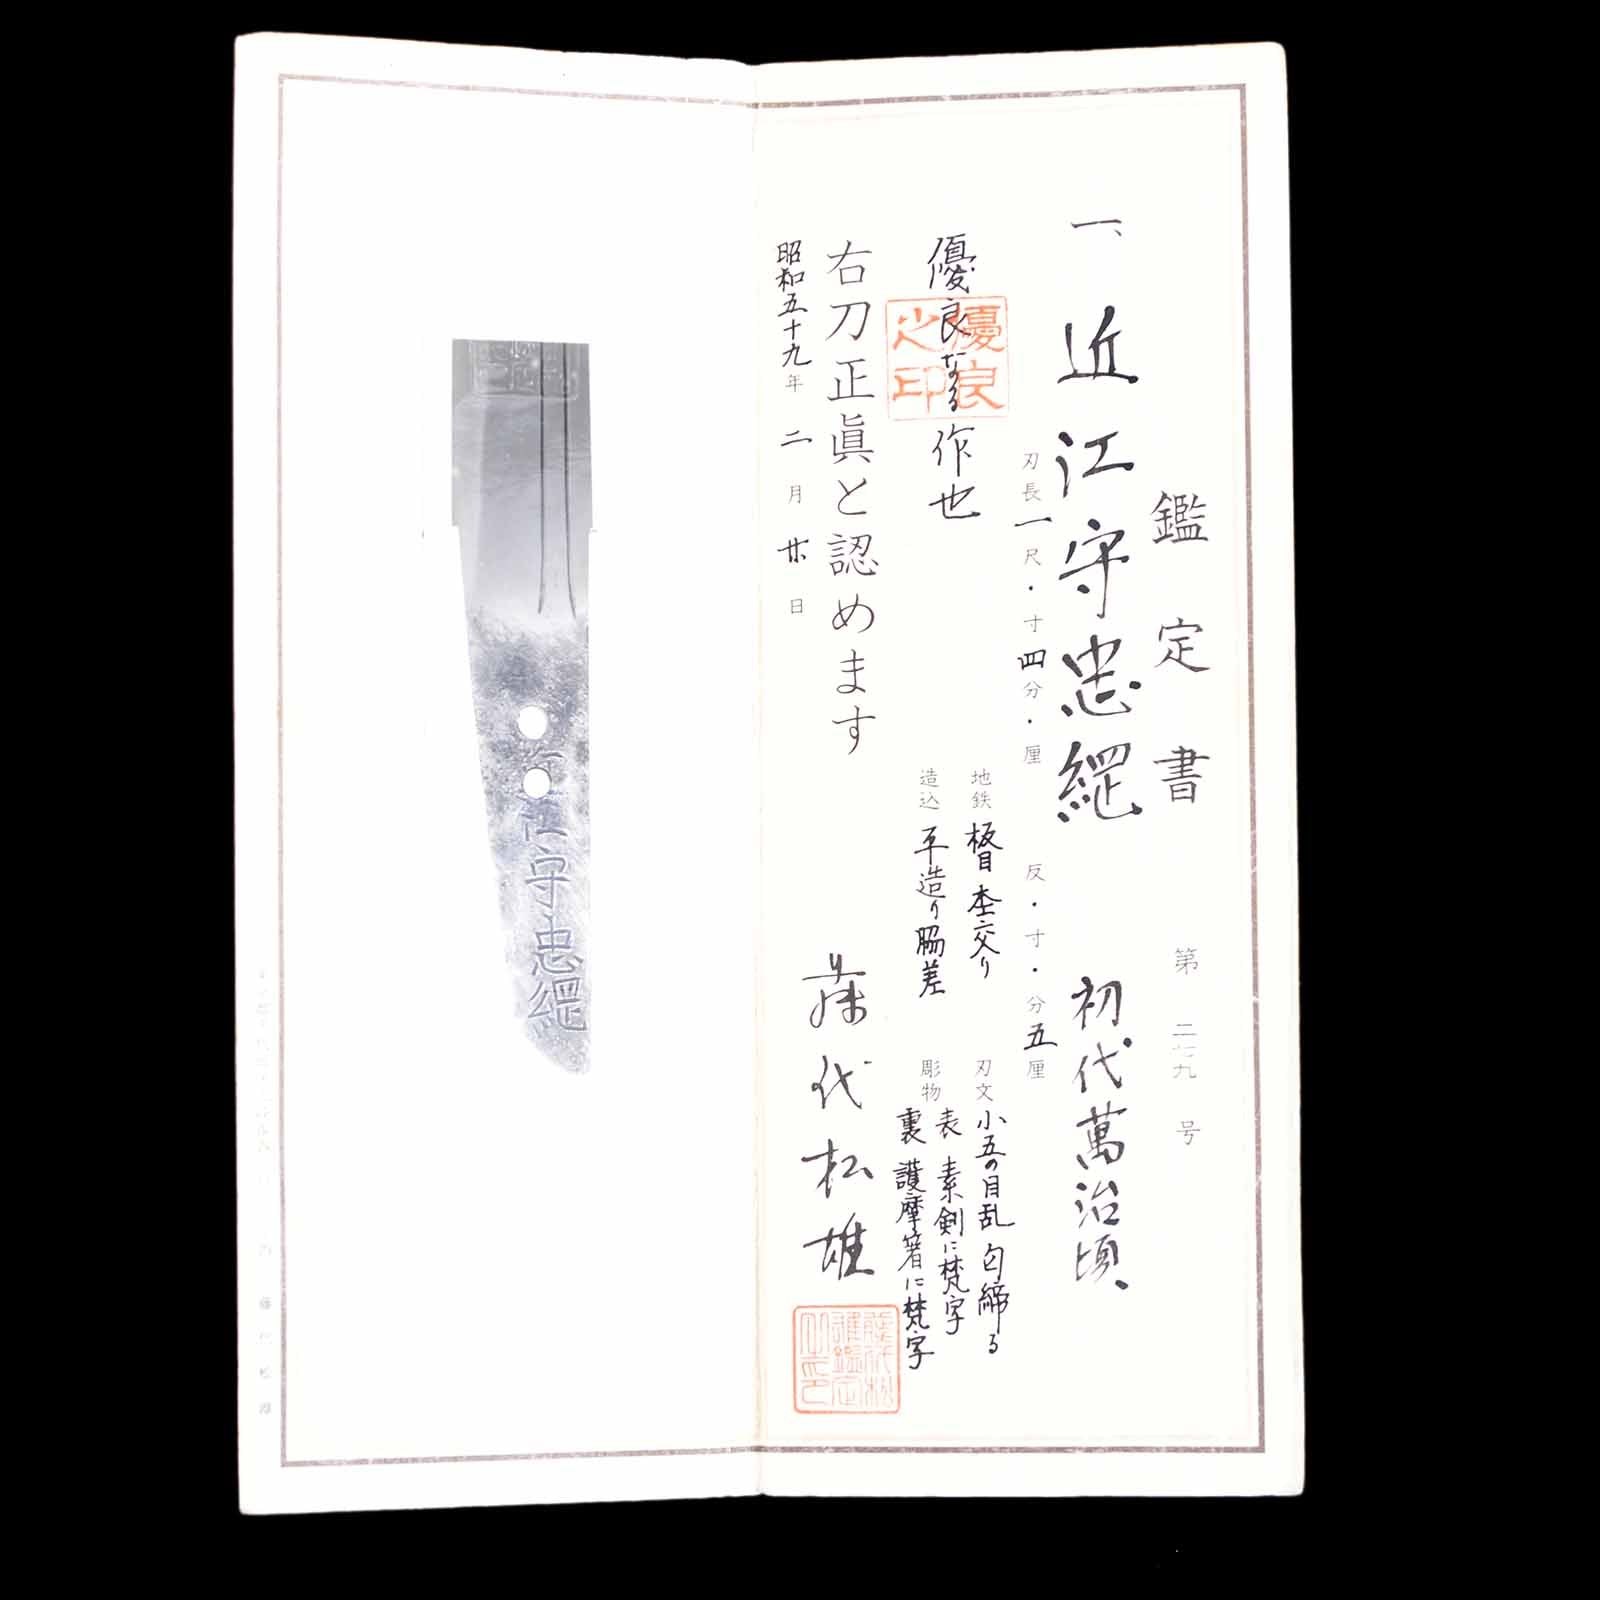 鑑定書
第二七九号
一、近江守忠綱 初代萬治頃
刃長一尺・寸四分・厘 反・寸・分五厘
地鉄 板目杢交り 刃文 小五の目乱匂締る
造込 平造り脇差 彫物 表 素剣に梵字
裏 護摩箸に梵字
優良なる作也
優良之印
右刀正眞と認めます
昭和五十九年二月廿日
藤代松雄
江守忠綱